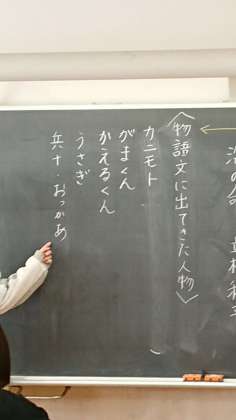 〈物語文に出てきた人物〉
カニモト
がまくん
かえるくん
うさぎ
兵十・おっかあ